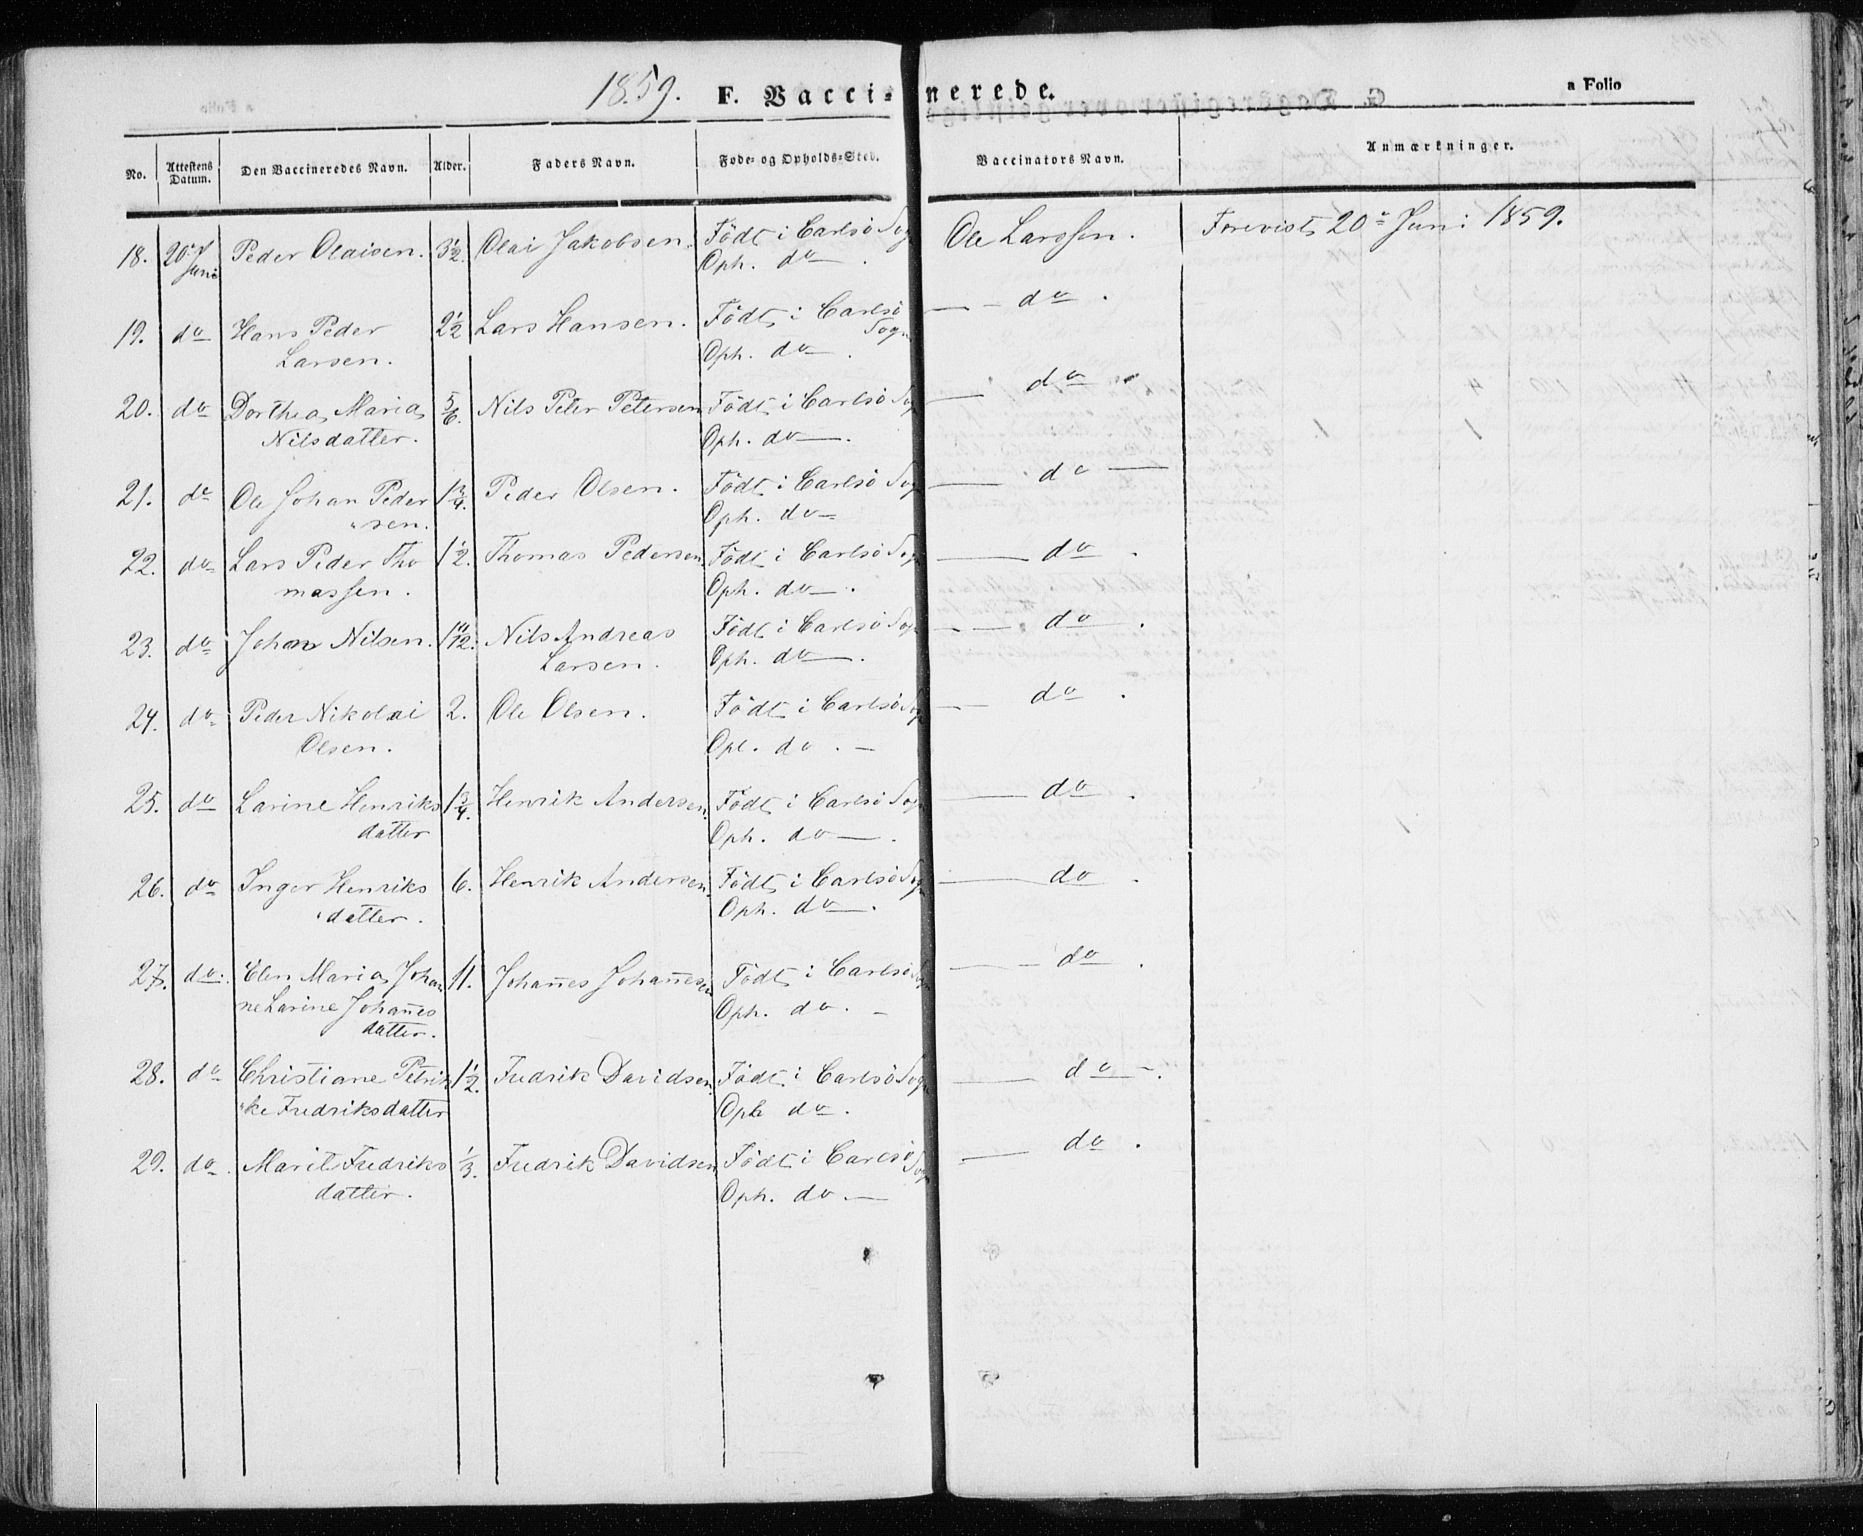 1859. F. Vaccinerede. a Folio
No. Attestens Datum. Den Vaccineredes Navn. Alder. Faders Navn. Føde- og Opholds-Sted. Vaccinators Navn. Anmærkninger.
18. 20de Juni Peder Olaisen. 3½ Olai Jakobsen. Født i Carlsö Sogn Ole Larssen. Forevist 20de Juni 1859.
Oph. do
19. do Hans Peder 2½ Lars Hansen. Født i Carlsö Sogn do.
Larsen. Oph. do.
20. do Dorthea Maria 5/6. Nils Peter Petersen Født i Carlsö Sogn do
Nilsdatter. Oph. do.
21. do Ole Johan Peder 1¾. Peder Olsen. Født i Carlsö Sogn do
sen. Oph. do
22. do Lars Peder Tho 1½. Thomas Pedersen Født i Carlsö Sogn do.
massen. Oph. do.
23. do Johan Nilsen. 1 11/12. Nils Andreas Født i Carlsö Sogn do.
Larsen. Oph. do.
24. do Peder Nikolai 2. Ole Olsen. Født i Carlsö Sogn do.
Olsen. Oph. do.
25. do Larine Henriks 1¾. Henrik Andersen. Født i Carlsö Sogn do.
datter Oph. do.
26. do Inger Henriks 6. Henrik Andersen. Født i Carlsö Sogn do.
datter. Oph. do.
27. do. Elen Maria Johan 11. Johan̄es Johan̄esen Født i Carlsö Sogn do.
ne Larine Johan̄es Oph. do.
datter.
28. do Christiane Petrik 1½. Fredrik Davidsen. Født i Carlsö Sogn do.
ke Fredriksdatter Oph do.
29. do. Marit Fredriks ⅓. Fredrik Davidsen Født i Carlsö Sogn do.
datter. Oph. do.